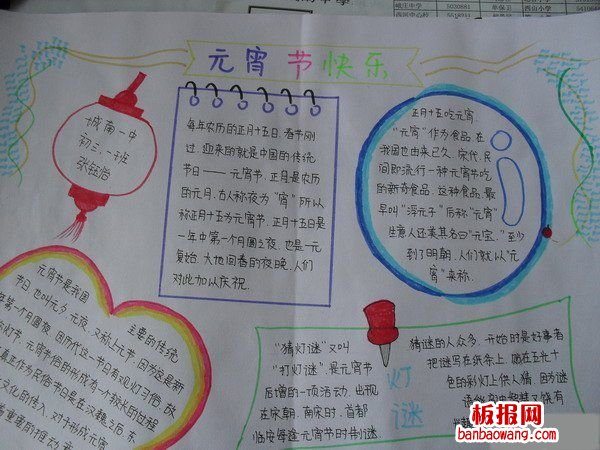 元宵节快乐
城南一中
初三.一班
每年农历的正月十五日.春节刚
过.迎来的就是中国的传统
节日——元宵节.正月是农历
的元月.古人称夜为“宵”所以
称正月十五为元宵节.正月十五日是
一年中第一个月圆之夜.也是一元
复始.大地回春的夜晚.人们
对此加以庆祝.
正月十五吃元宵
“元宵”作为食品.在
我国也由来已久.宋代.民
间即流行一种元宵节吃
的新奇食品.这种食品.最
早叫“浮元子”后称“元宵”
生意人还美其名曰“元宝.”至少
到了明朝.人们就以“元
宵”来称.
元宵节是我国
主要的传统
节日.也叫元夕.元夜.又称上元节.因为这是新
年第一个月圆夜.因历代这一节日有观灯习俗.故
称灯节.元宵节俗的形成为一个较长的过程
真正作为民俗节日是在汉魏之后.东
文化的传入.对于形成元宵
有重要的推动
“猜灯谜”又叫
“打灯谜”.是元宵节
后增的一项活动.出现
在宋朝.南宋时.首都
临安每逢元宵节时制谜.
灯谜
猜谜的人众多.开始时是好事者
把谜写在纸条上.贴在五光十
色的彩灯上供人猜.因为谜
板报网
banbaowang.com